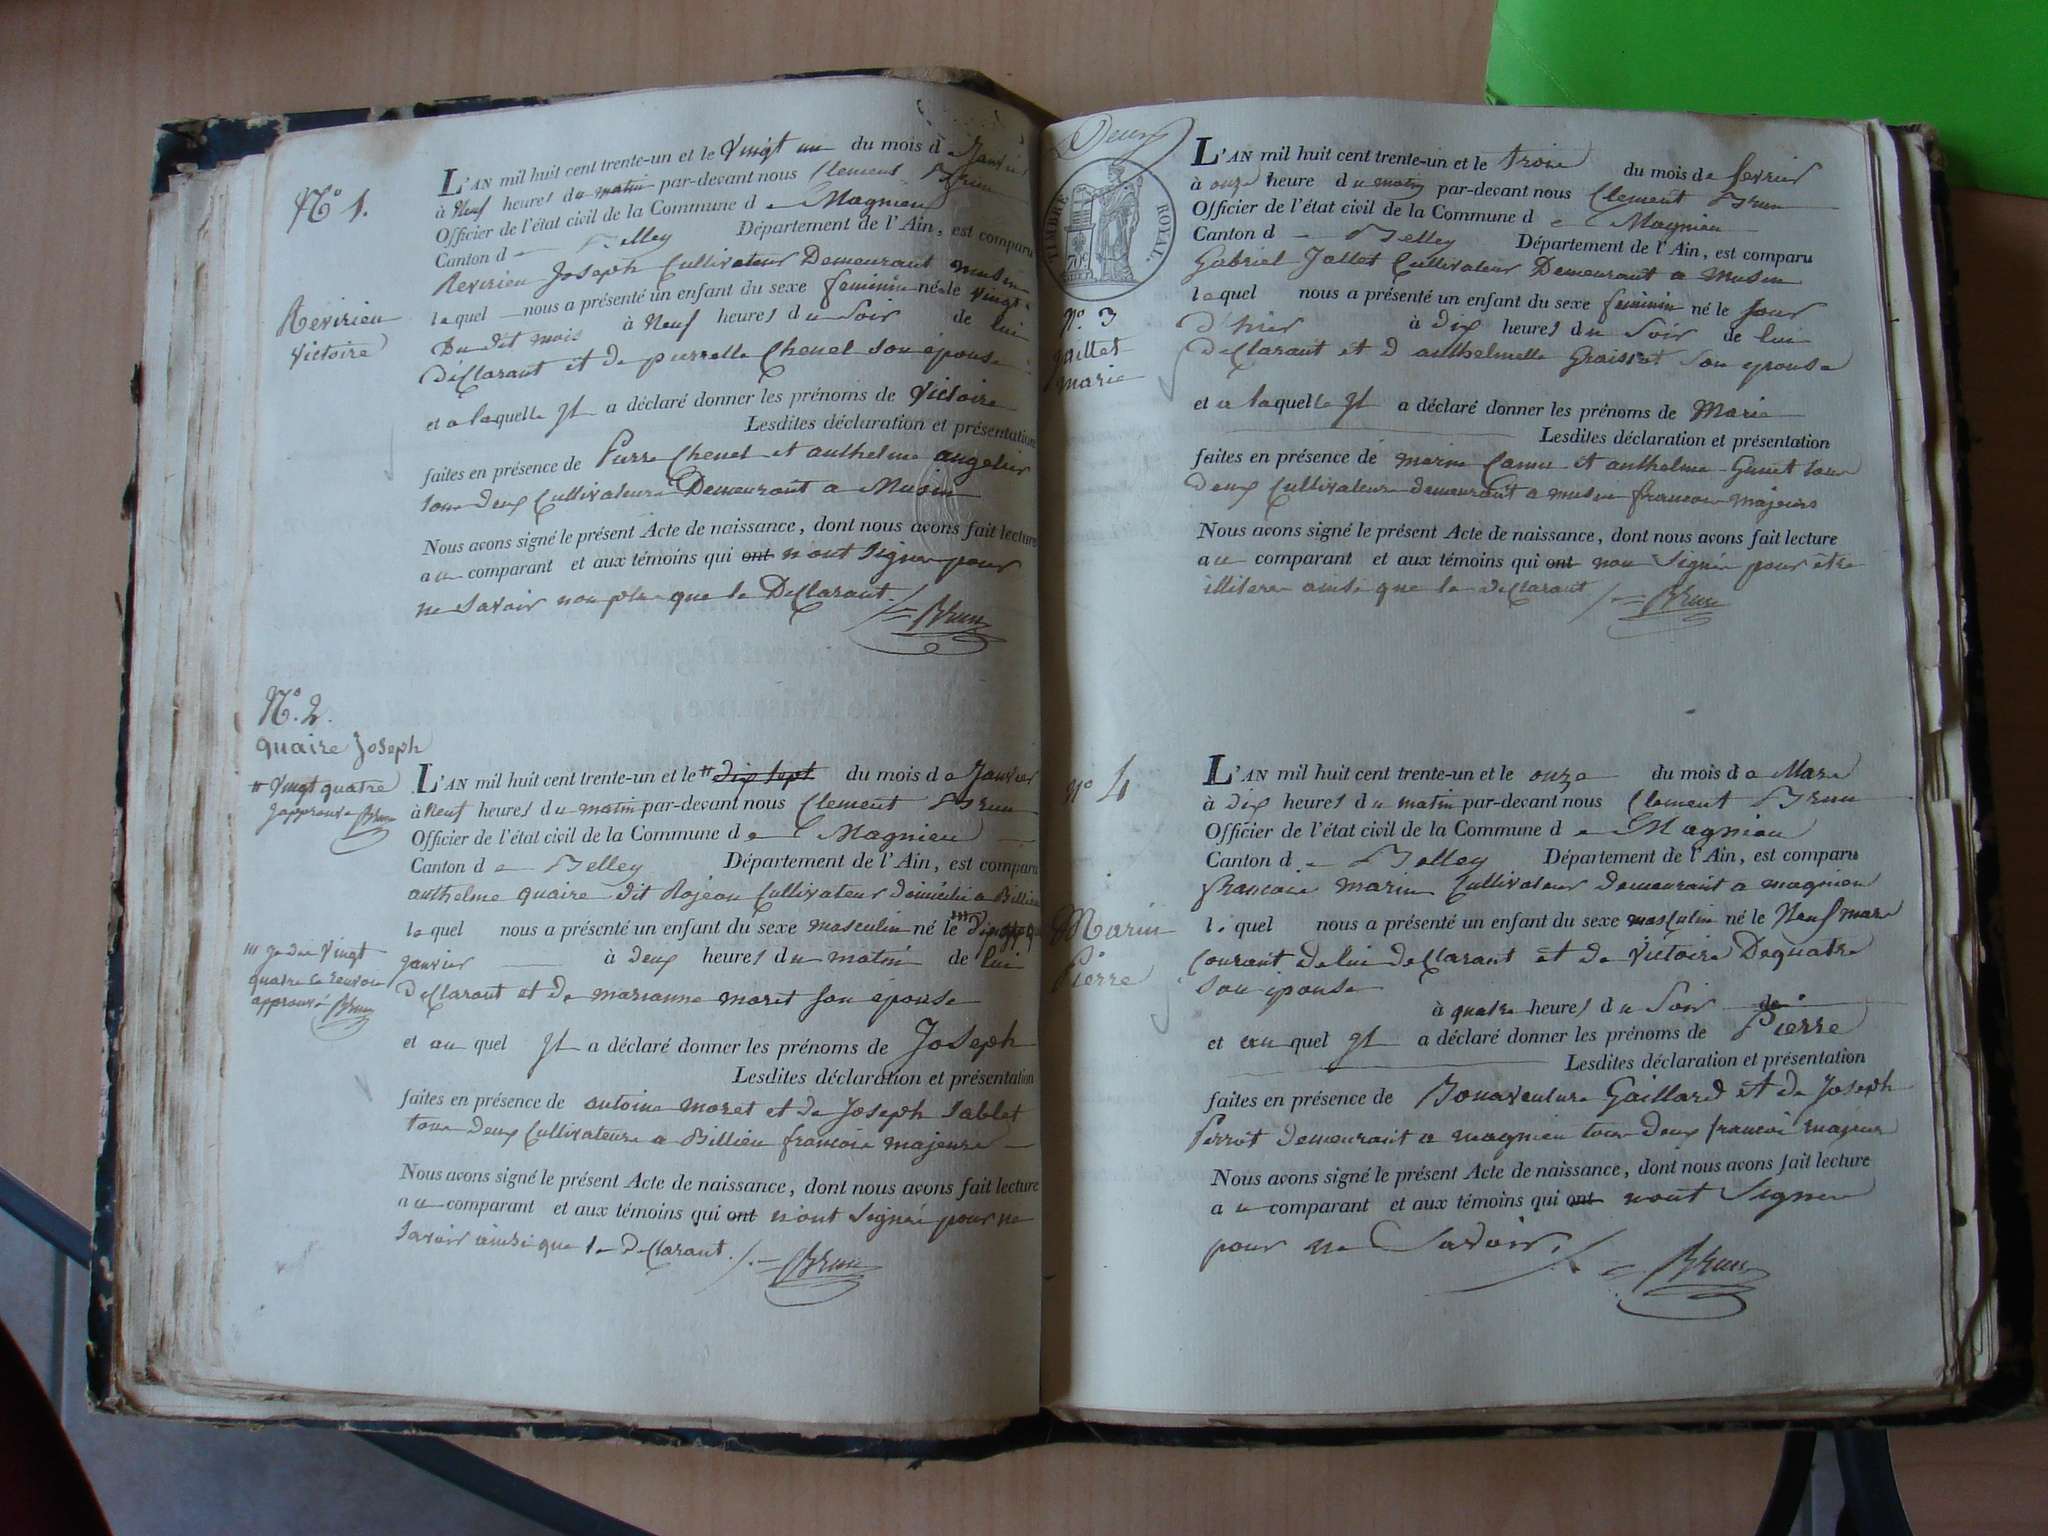 N.º 1.
Revirieu
Victoire
L'AN mil huit cent trente-un et le Vingt un du mois de Janvier
à Neuf heures du matin par-devant nous Clement Brun
Officier de l'état civil de la Commune de Magnieu
Canton de Belley Département de l'Ain, est comparu
Revirieu Joseph Cultivateur Demeurant musin
lequel nous a présenté un enfant du sexe feminin né le vingt
Du dit mois à Neuf heures du Soir de lui
déClarant et de pierrette Chenel son épouse
et a laquelle Jl a déclaré donner les prénoms de Victoire
Lesdites déclaration et présentation
faites en présence de Pierre Chenel et anthelme angelier
tous Deux Cultivateurs Demeurant a Musin
Nous avons signé le présent Acte de naissance, dont nous avons fait lecture
au comparant et aux témoins qui ont n'ont Signer pour
ne Savoir non plus que le DeClarant. Brun
N.º 2.
quaire Joseph
Vingt quatre
Japprouve Brun
L'AN mil huit cent trente-un et le dix sept du mois de Janvier
à Neuf heures du matin par-devant nous Clement Brun
Officier de l'état civil de la Commune de Magnieu
Canton de Belley Département de l'Ain, est comparu
anthelme quaire dit Rojeau Cultivateur domicilié a Billieu
lequel nous a présenté un enfant du sexe masculin né le
Vingt
quatre le renvoi
approuvé Brun
janvier à deux heures du matin de lui
deClarant et de marianne moret son épouse
et au quel Jl a déclaré donner les prénoms de Joseph
Lesdites déclaration et présentation
faites en présence de antoine moret et de Joseph Jablet
tous Deux Cultivateurs a Billieu francois majeurs
Nous avons signé le présent Acte de naissance, dont nous avons fait lecture
au comparant et aux témoins qui ont n'ont Signé pour ne
Savoir ainsi que le deClarant. Brun
Deux
TIMBRE ROYAL
N.º 3
Jaillet
marie
L'AN mil huit cent trente-un et le trois du mois de fevrier
à onze heure du matin par-devant nous Clement Brun
Officier de l'état civil de la Commune de Magnieu
Canton d Belley Département de l'Ain, est comparu
Gabriel Jallet Cultivateur Demeurant a musin
lequel nous a présenté un enfant du sexe feminin né le jour
d'hier à dix heures du Soir de lui
deClarant et d anthelmette Graissot Son epouse
et a laquelle Jl a déclaré donner les prénoms de Marie
Lesdites déclaration et présentation
faites en présence de marin Camu et anthelme Gunet tous
deux Cultivateurs demeurant a musin francois majeurs
Nous avons signé le présent Acte de naissance, dont nous avons fait lecture
au comparant et aux témoins qui ont non Signés pour être
illiteres ainsi que le deClarant Brun
nº 4
Marin
Pierre
L'AN mil huit cent trente-un et le onze du mois de Mars
à dix heures du matin par-devant nous Clement Brun
Officier de l'état civil de la Commune de Magnieu
Canton de Belley Département de l'Ain, est comparu
francois marin Cultivateur Demeurant a magnieu
lequel nous a présenté un enfant du sexe masculin né le Neuf mars
Courant de lui deClarant et de Victoire Dequatre
son épouse
à quatre heures du Soir de
et au quel Jl a déclaré donner les prénoms de Pierre
Lesdites déclaration et présentation
faites en présence de Bonaventure Gaillard et de Joseph
Perrot demeurant a magnieu tous deux francois majeur
Nous avons signé le présent Acte de naissance, dont nous avons fait lecture
au comparant et aux témoins qui ont nont Signer
pour ne Savoir. Brun